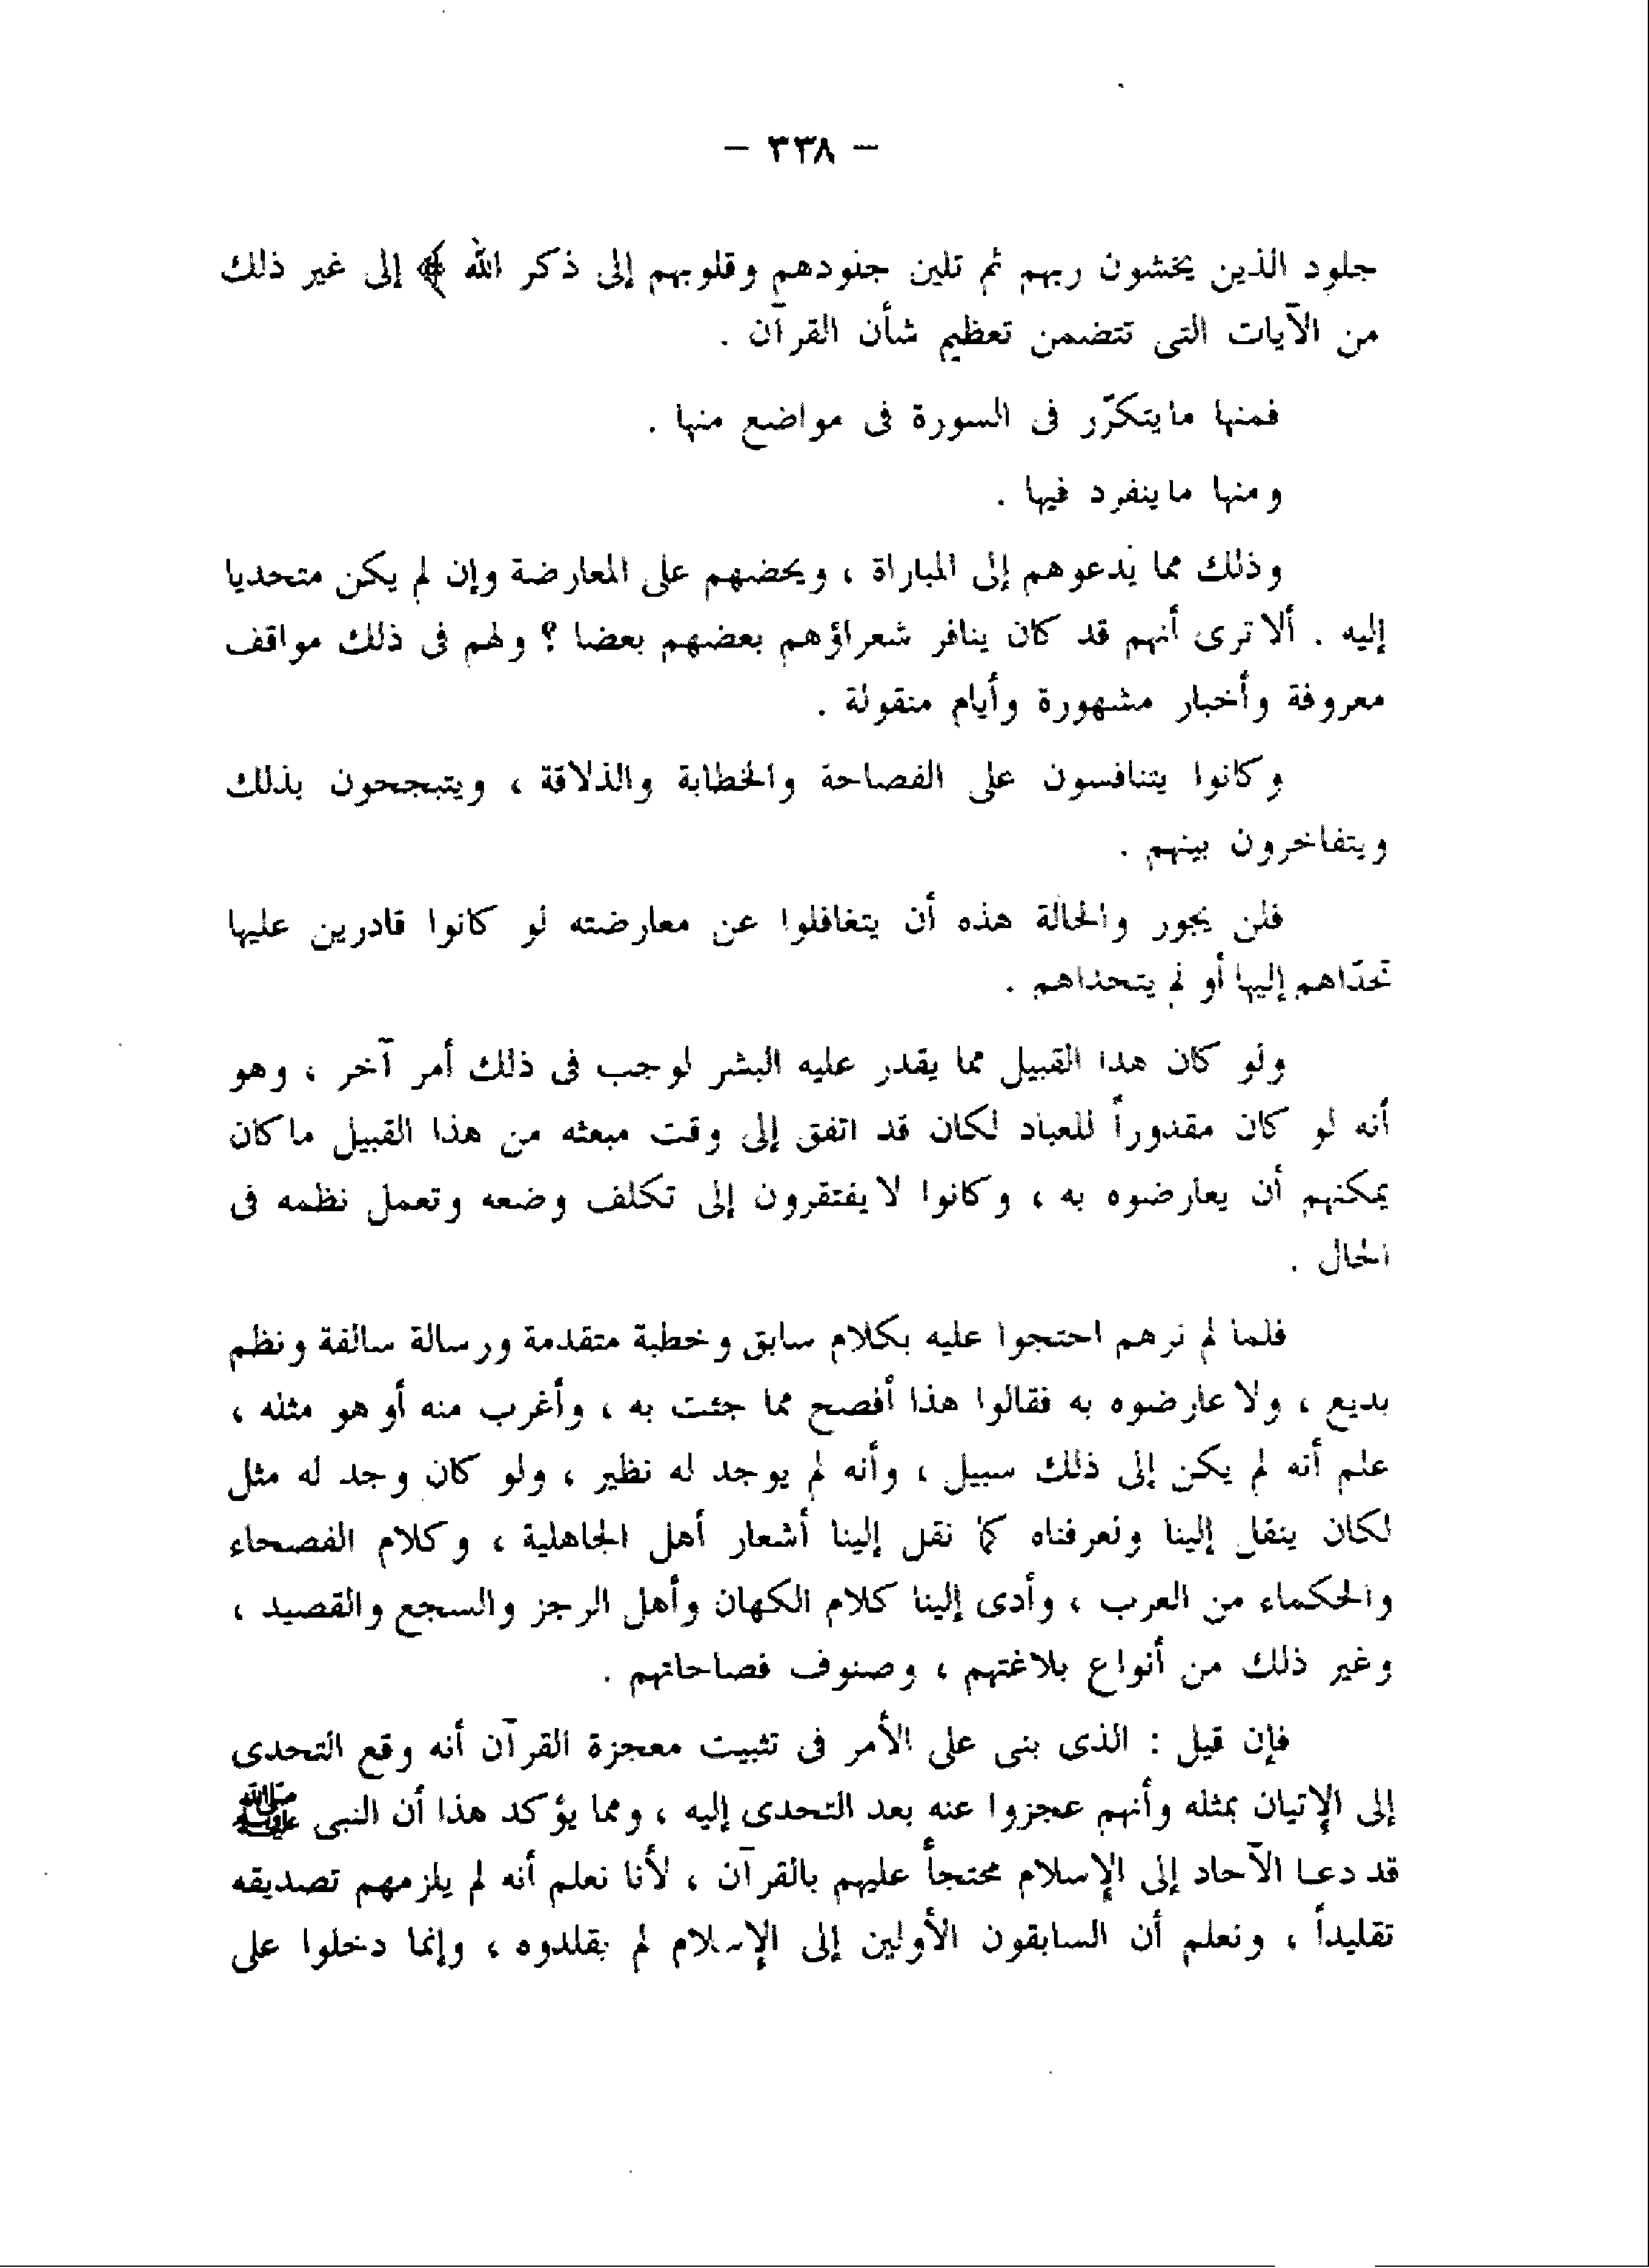 — ٣٣٨ —
جلود الذين يخشون ربهم ثم تلين جلودهم وقلوبهم إلى ذكر الله ﴾ إلى غير ذلك
من الآيات التى تتضمن تعظيم شأن القرآن .
فمنها ما يتكرّر فى السورة فى مواضع منها .
ومنها ما ينفرد فيها .
وذلك مما يدعوهم إلى المباراة ، ويحضهم على المعارضة وإن لم يكن متحديا
إليه . ألا ترى أنهم قد كان ينافر شعراؤهم بعضهم بعضا ؟ ولهم فى ذلك مواقف
معروفة وأخبار مشهورة وأيام منقولة .
وكانوا يتنافسون على الفصاحة والخطابة والذلاقة ، ويتبجحون بذلك
ويتفاخرون بينهم .
فلن يجور والحالة هذه أن يتغافلوا عن معارضته لو كانوا قادرين عليها
تحدّاهم إليها أو لم يتحداهم .
ولو كان هذا القبيل مما يقدر عليه البشر لوجب فى ذلك أمر آخر ، وهو
أنه لو كان مقدوراً للعباد لكان قد اتفق إلى وقت مبعثه من هذا القبيل ما كان
يمكنهم أن يعارضوه به ، وكانوا لا يفتقرون إلى تكلف وضعه وتعمل نظمه فى
الحال .
فلما لم نرهم احتجوا عليه بكلام سابق وخطبة متقدمة ورسالة سالفة ونظم
بديع ، ولا عارضوه به فقالوا هذا أفصح مما جئت به ، وأغرب منه أو هو مثله ،
علم أنه لم يكن إلى ذلك سبيل ، وأنه لم يوجد له نظير ، ولو كان وجد له مثل
لكان ينقل إلينا ولعرفناه كما نقل إلينا أشعار أهل الجاهلية ، وكلام الفصحاء
والحكماء من العرب ، وأدى إلينا كلام الكهان وأهل الرجز والسجع والقصيد ،
وغير ذلك من أنواع بلاغتهم ، وصنوف فصاحاتهم .
فإن قيل : الذى بنى على الأمر فى تثبيت معجزة القرآن أنه وقع التحدى
إلى الإتيان بمثله وأنهم عجزوا عنه بعد التحدى إليه ، ومما يؤكد هذا أن النبى ﷺ
قد دعا الآحاد إلى الإسلام محتجاً عليهم بالقرآن ، لأنا نعلم أنه لم يلزمهم تصديقه
تقليداً ، ونعلم أن السابقون الأولين إلى الإسلام لم يقلدوه ، وإنما دخلوا على